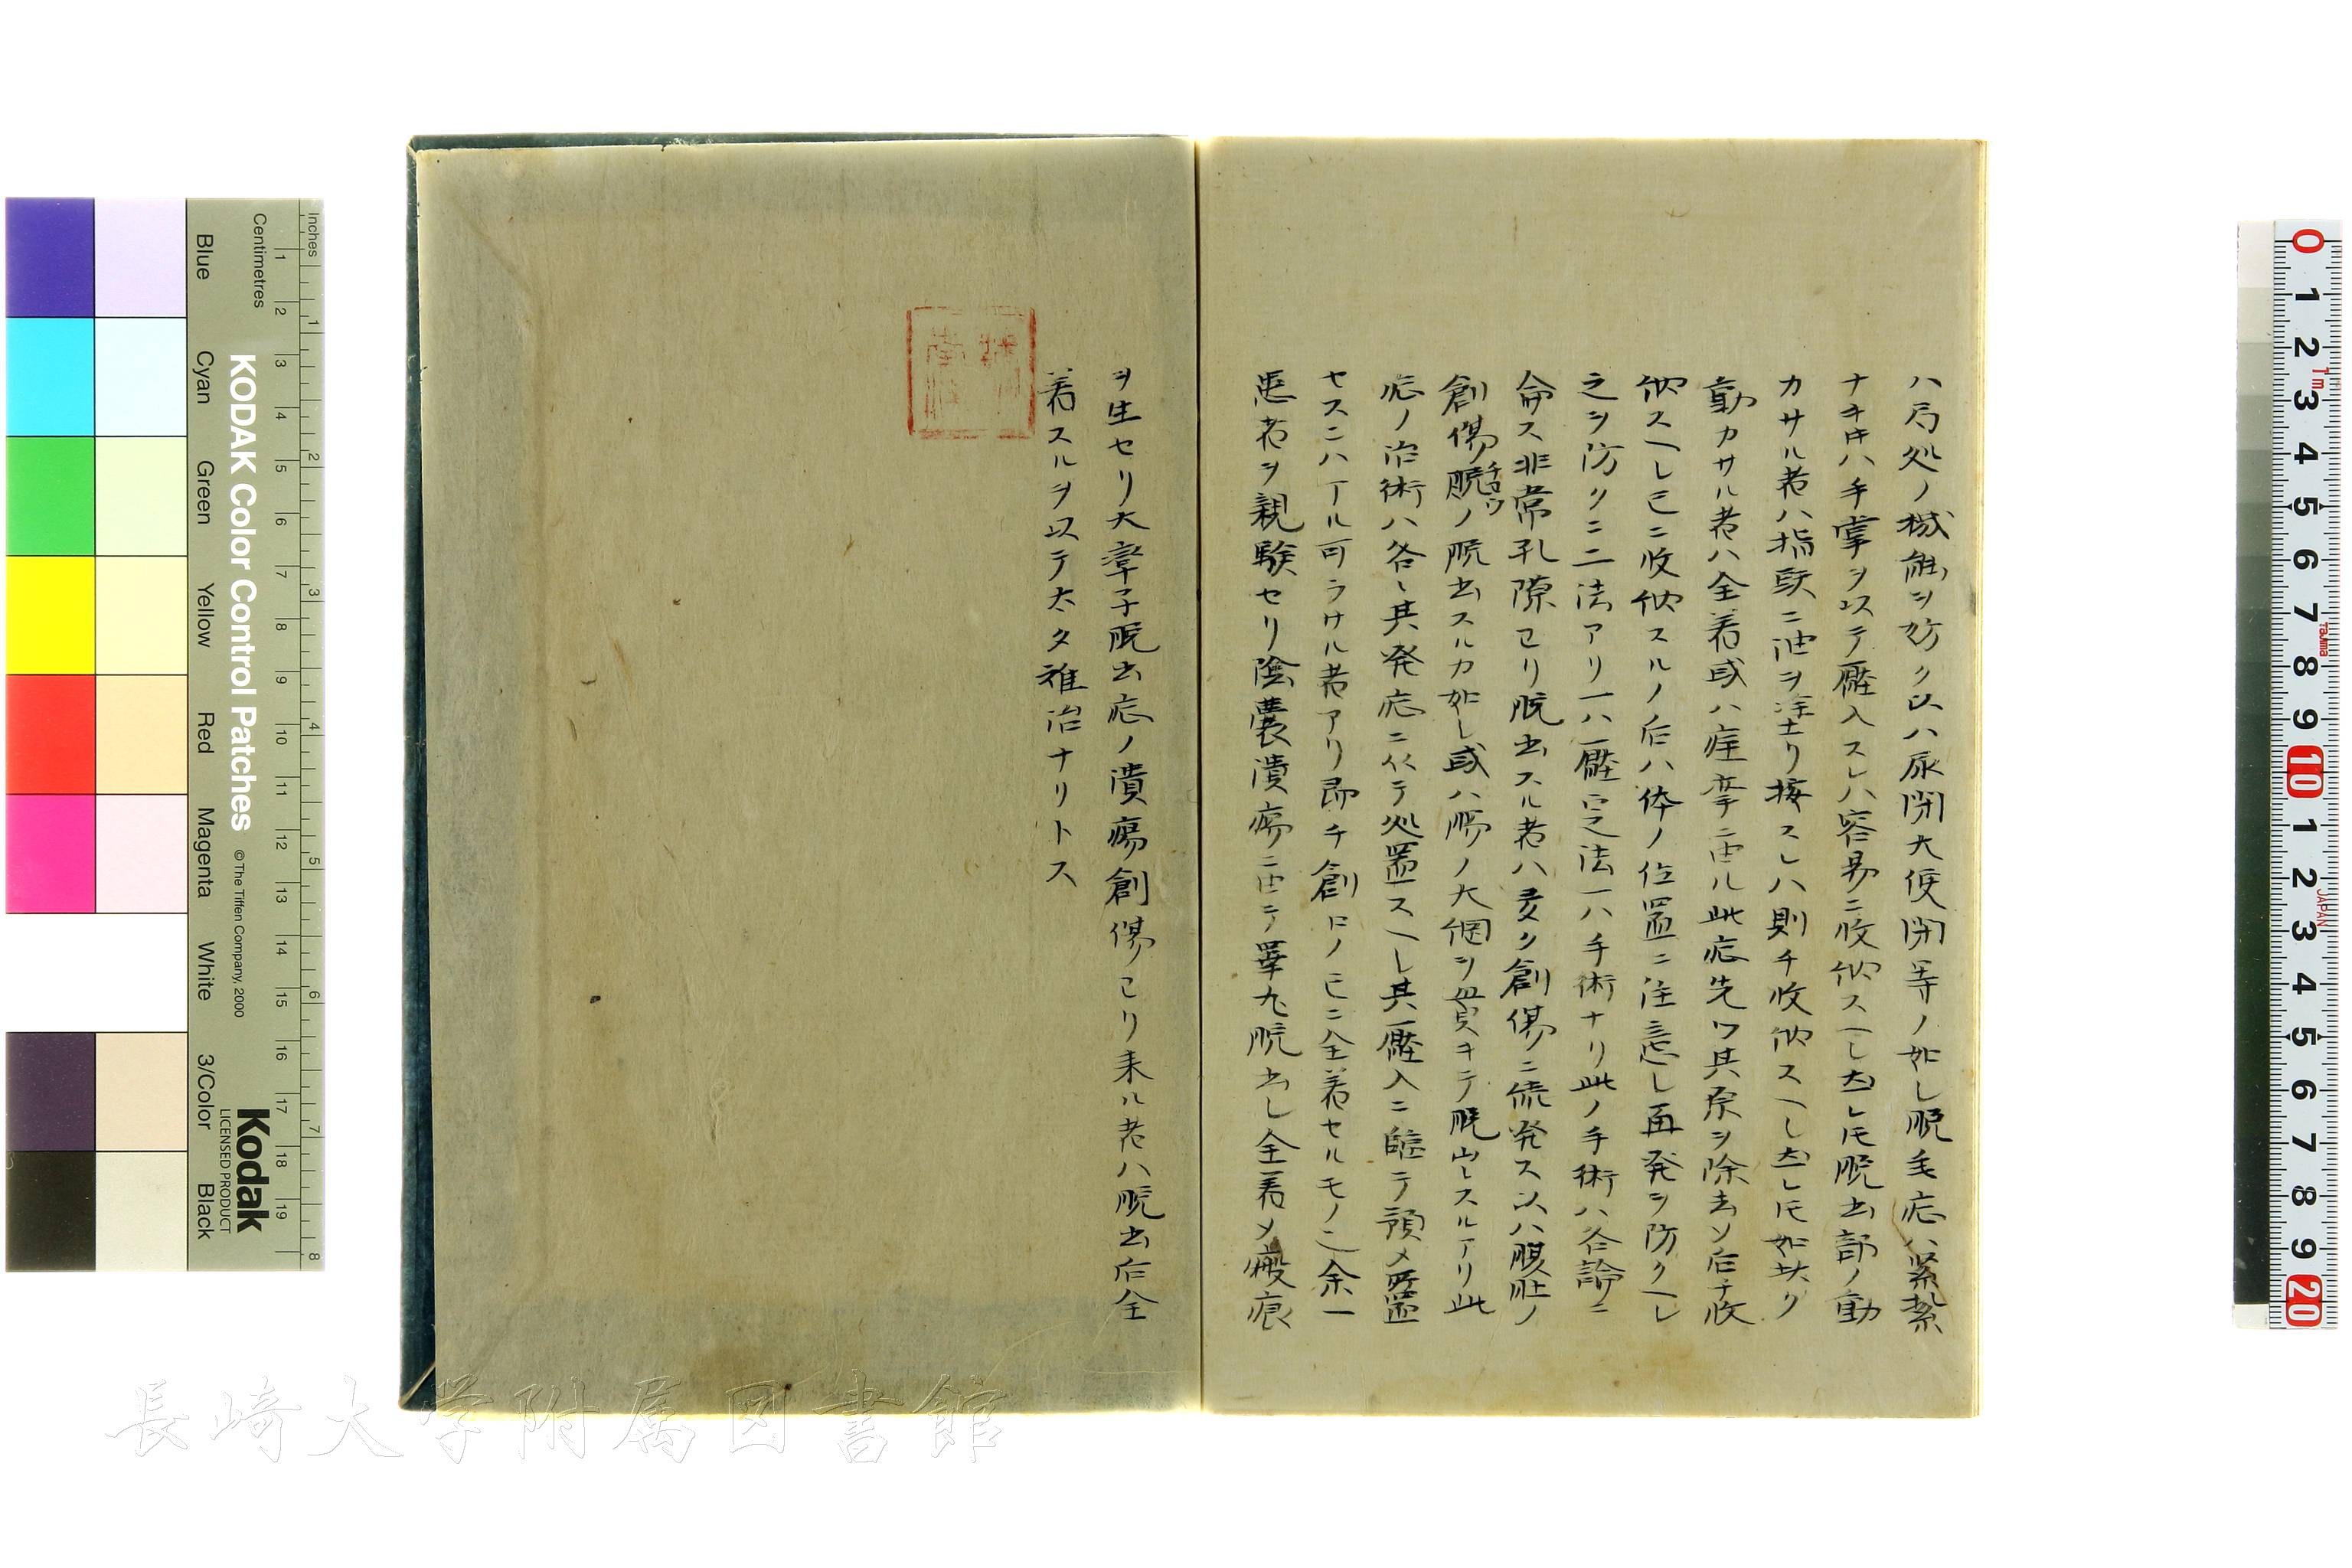 ハ局処ノ機能ヲ妨ク以ハ尿閉大便閉等ノ如し脱毛症ハ緊紮
ナキ片ハ手掌ヲ以テ壓入スレハ容易ニ收納スヘし然レ𪜈脱出部ノ動
カサル者ハ指頭ニ油ヲ注キリ按スレハ則チ收納スヘし然レ𪜈如此ク
動カサル者ハ全着或ハ痙攣ニ由ル此症先ツ其原ヲ除去ソ后チ收
納スヘし已ニ收納スルノ后ハ体ノ位置ニ注意し再発ヲ防クヘし
之ヲ防クニ二法アリ一ハ壓定之法一ハ手術ナリ此ノ手術ハ各論ニ
命ス非常孔隙ヨリ脱出スル者ハ多ク創傷ニ続発ス以ハ腹壁ノ
創傷腸ノ脱出スルカ如し或ハ腸ノ大網ヲ貫キテ脱出スルアリ此
チヨウ
症ノ治術ハ各々其発症ニ從テ処置スヘし其壓入ニ臨テ預メ処置
セスンハアル可ラサル者アリ即チ創口ノ已ニ全着セルモノ之余一
患者ヲ親験セリ陰嚢潰瘍ニ由テ睾丸脱出し全着メ瘢痕
ヲ生セリ大睾子脱出症ノ潰瘍創傷ヨリ来ル者ハ脱出后全
着スルヲ以テ太タ難治ナリトス
長崎大学附属図書館
KODAK Color Control Patches
© The Tiffen Company, 2000
Kodak
LICENSED PRODUCT
Inches
Centimetres
Blue
Cyan
Green
Yellow
Red
Magenta
White
3/Color
Black
1 2 3 4 5 6 7 8
1 2 3 4 5 6 7 8 9 10 11 12 13 14 15 16 17 18 19
0 1 2 3 4 5 6 7 8 9 10 1 2 3 4 5 6 7 8 9 20
1m
Tajima
JAPAN